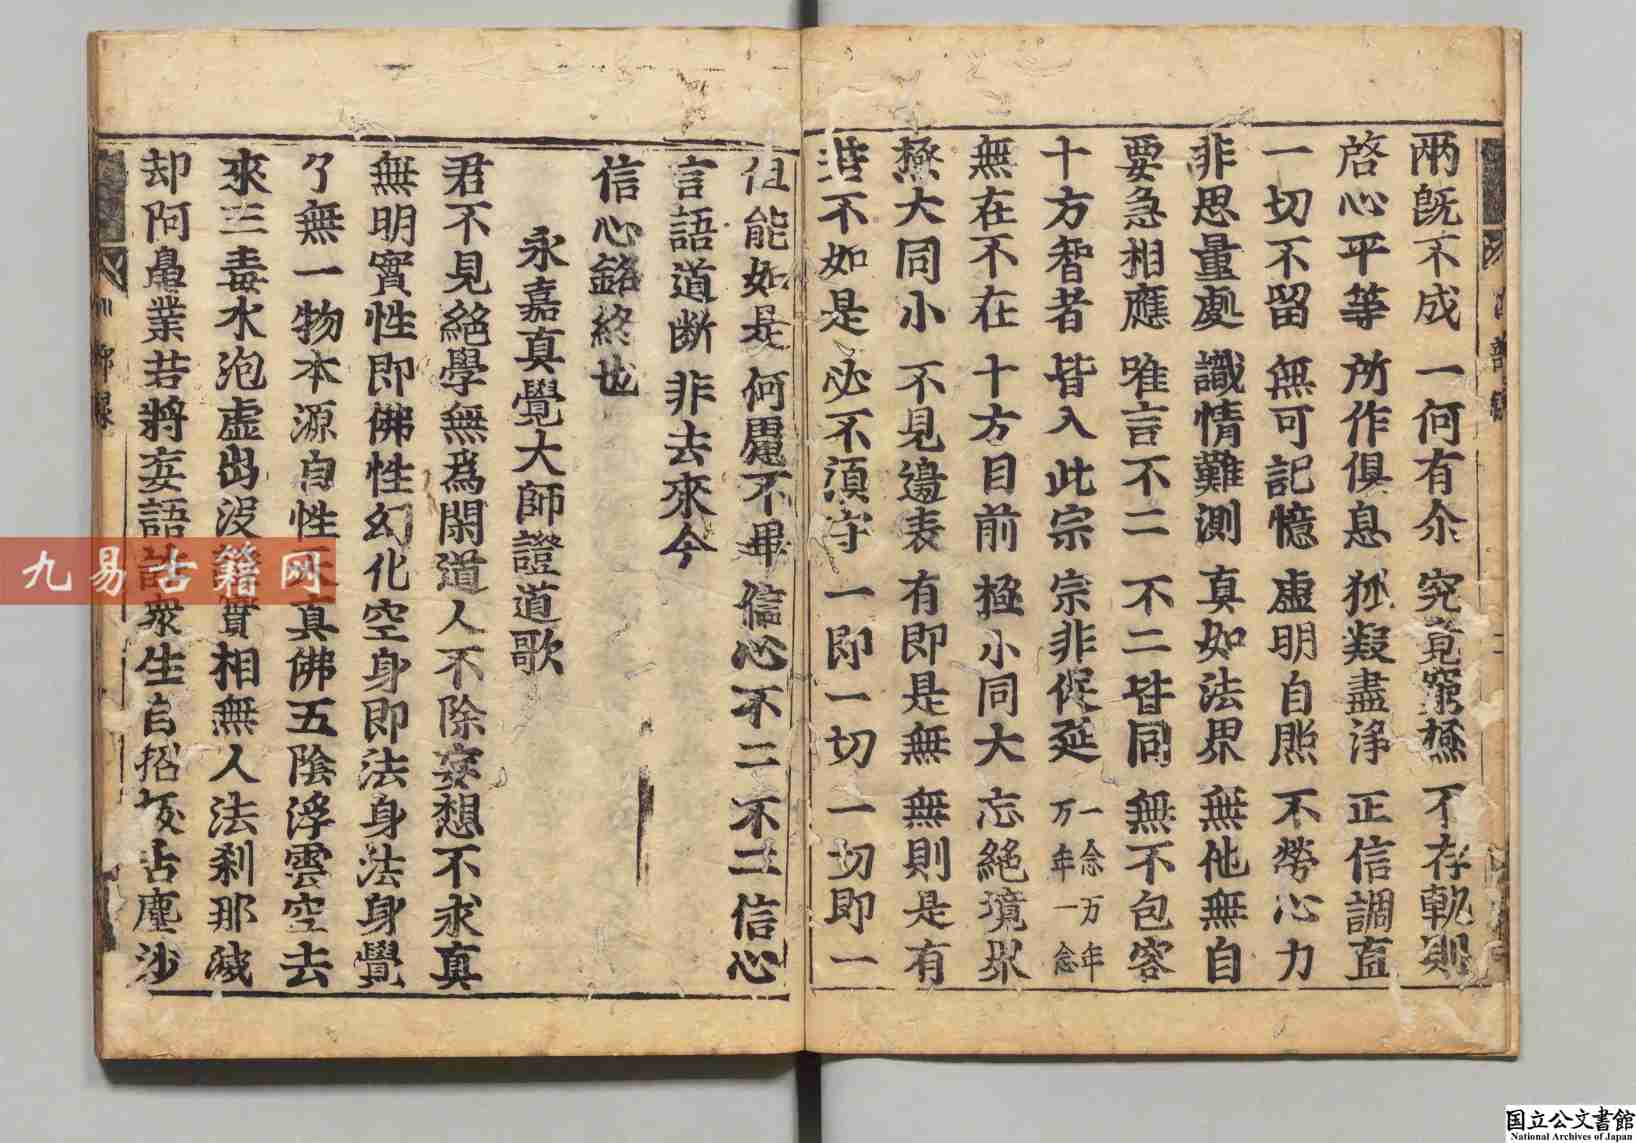 兩旣不成 一何有尒 究竟窮極 不存軌則
啓心平等 所作俱息 狐疑盡淨 正信調直
一切不留 無可記憶 虛明自照 不勞心力
非思量處 識情難測 真如法界 無他無自
要急相應 唯言不二 不二皆同 無不包容
十方智者 皆入此宗 宗非促延 一念万年 万年一念
無在不在 十方目前 極小同大 忘絕境界
極大同小 不見邊表 有即是無 無則是有
若不如是 必不須守 一即一切 一切即一
但能如是 何慮不畢 信心不二 不二信心
言語道斷 非去來今
信心銘終也
永嘉真覺大師證道歌
君不見絕學無爲閑道人不除妄想不求真
無明實性即佛性幻化空身即法身法身覺
了無一物本源自性真佛五陰浮雲空去
來三毒水泡虛出沒實相無人法刹那滅
却阿鼻業若將妄語衆生自招拔舌塵沙
九易古籍网
国立公文書館
National Archives of Japan